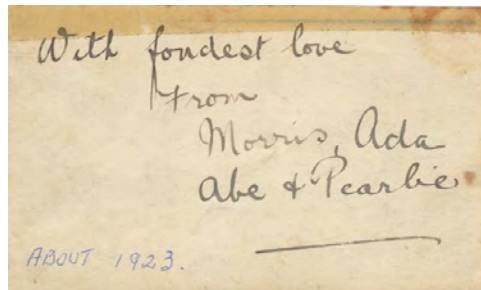 With fondest love
From
Morris, Ada
Abe & Pearlie
ABOUT 1923.